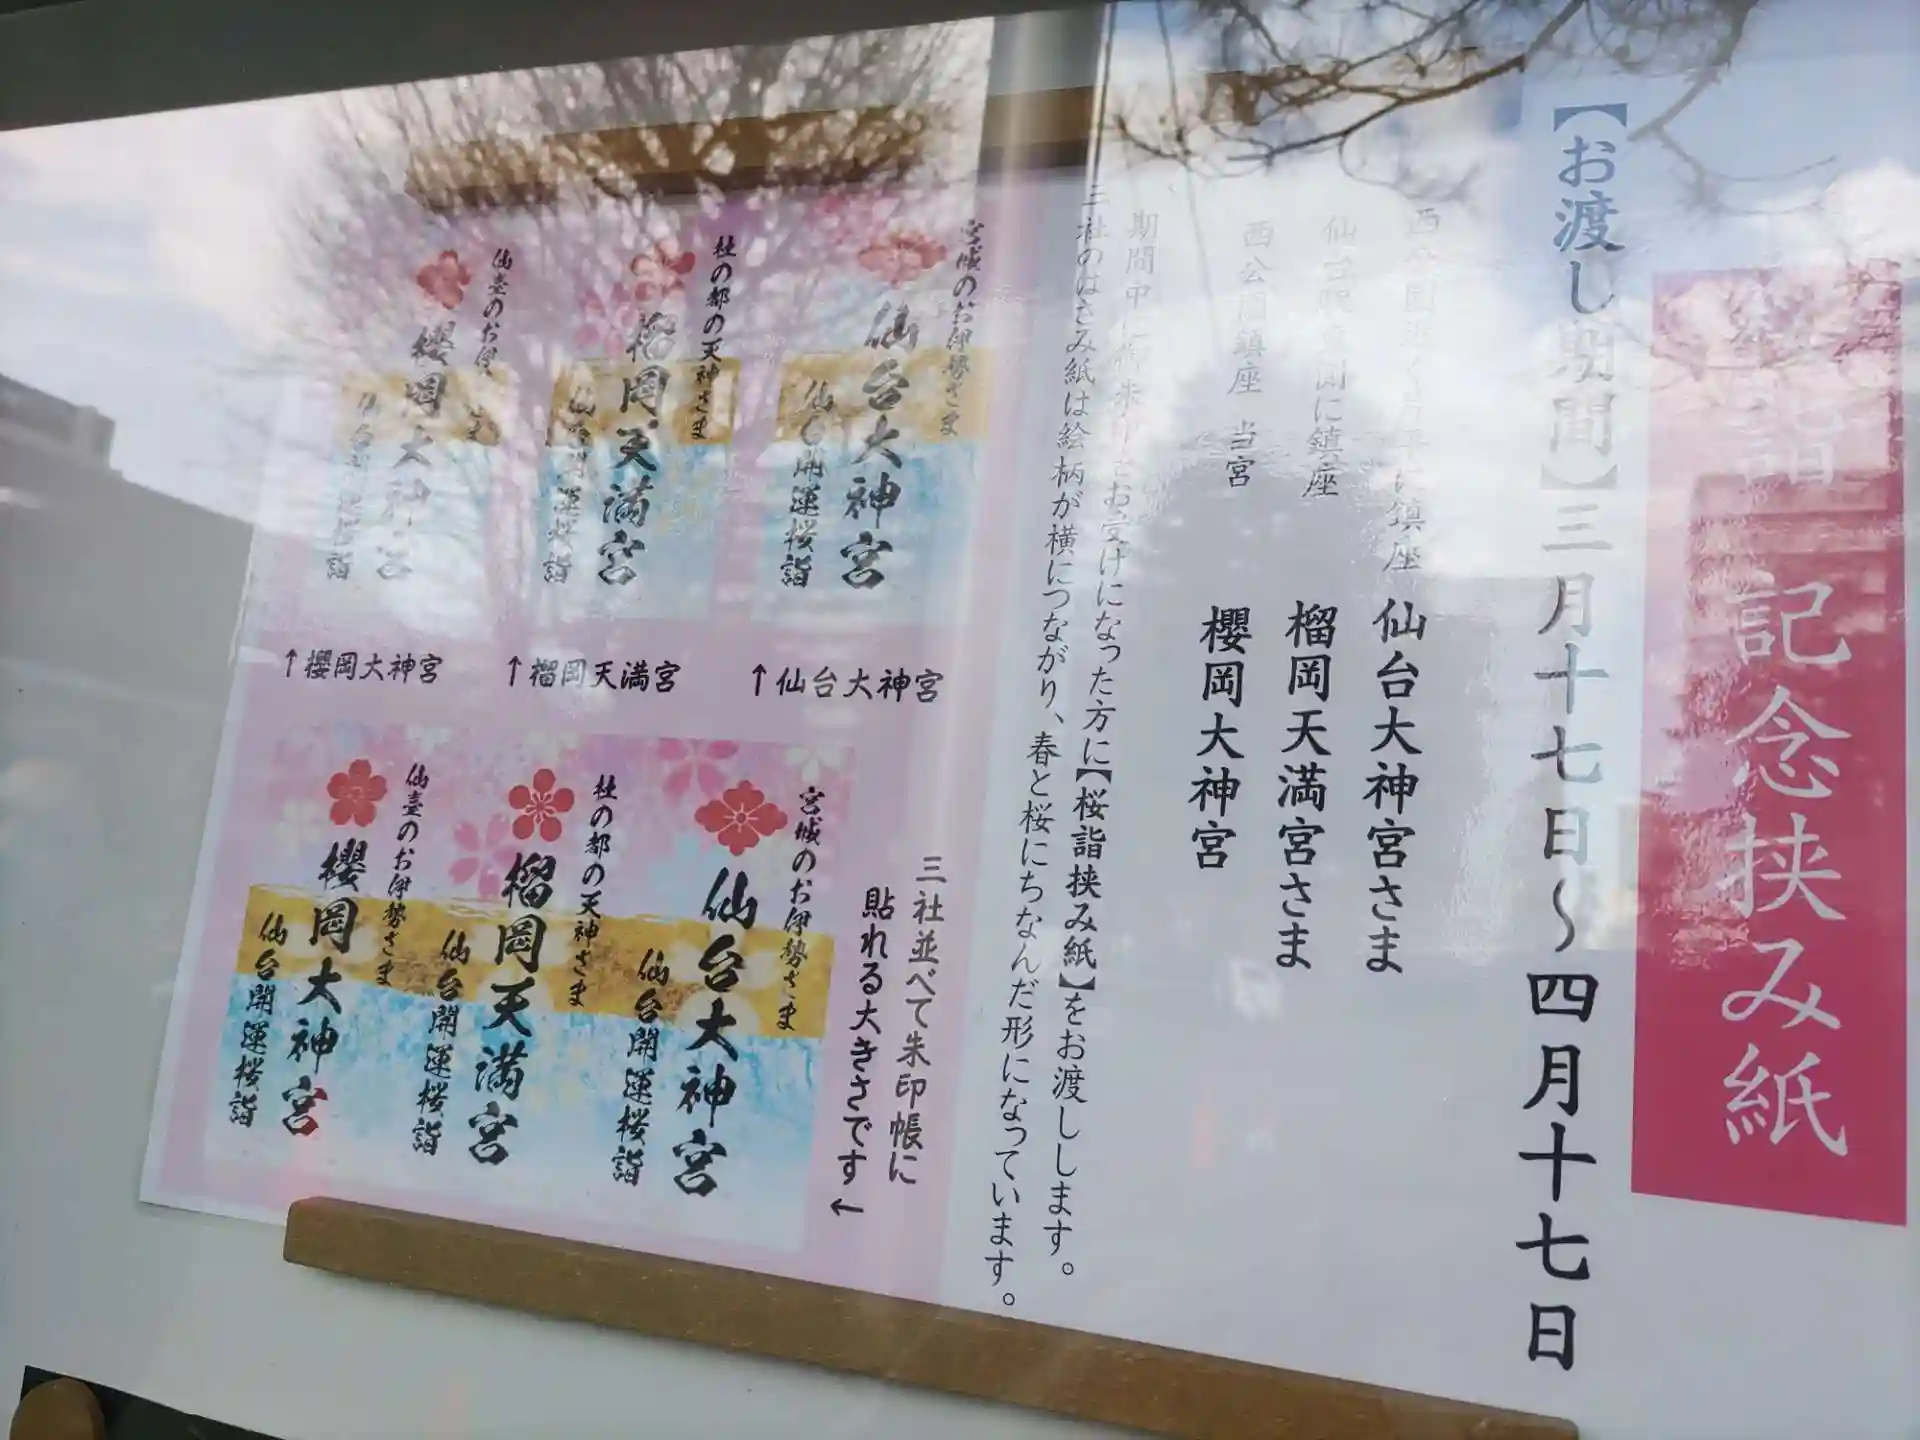 詣 記念挟み紙
【お渡し期間】三月十七日〜四月十七日
に鎮座 仙台大神宮さま
に鎮座 榴岡天満宮さま
西公園鎮座 当宮 櫻岡大神宮
期間中に御朱印をお受けになった方に【桜詣挟み紙】をお渡しします。
三社のはさみ紙は絵柄が横につながり、春と桜にちなんだ形になっています。
宮城のお伊勢さま
仙台大神宮
仙台開運桜詣
杜の都の天神さま
榴岡天満宮
仙台開運桜詣
仙臺のお伊勢さま
櫻岡大神宮
仙台開運桜詣
↑仙台大神宮
↑榴岡天満宮
↑櫻岡大神宮
三社並べて朱印帳に
貼れる大きさです←
宮城のお伊勢さま
仙台大神宮
仙台開運桜詣
杜の都の天神さま
榴岡天満宮
仙台開運桜詣
仙臺のお伊勢さま
櫻岡大神宮
仙台開運桜詣